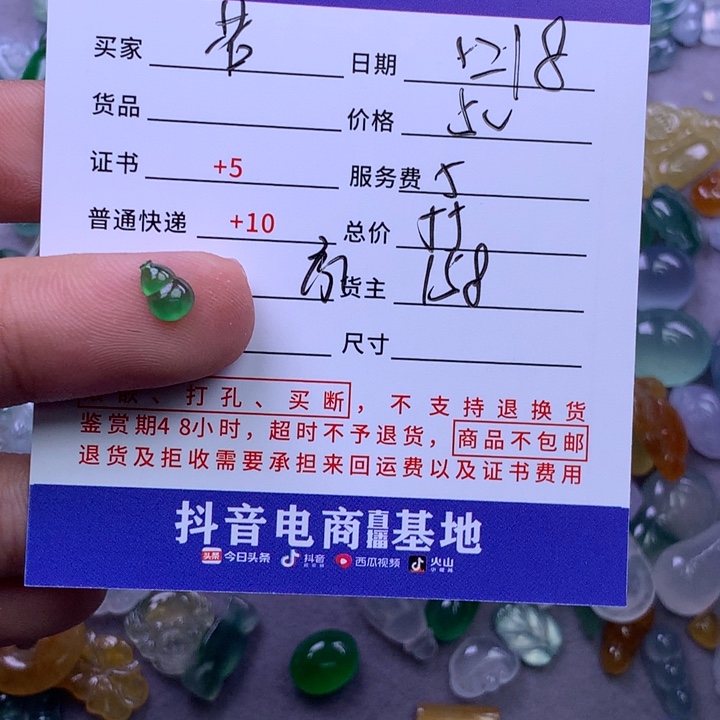 买家 日期 12.18
货品 价格 50
证书 +5 服务费 5
普通快递 +10 总价
货主 158
尺寸
、打孔、买断，不支持退换货
鉴赏期48小时，超时不予退货，商品不包邮
退货及拒收需要承担来回运费以及证书费用
抖音电商直播基地
头条 今日头条 抖音 西瓜视频 火山